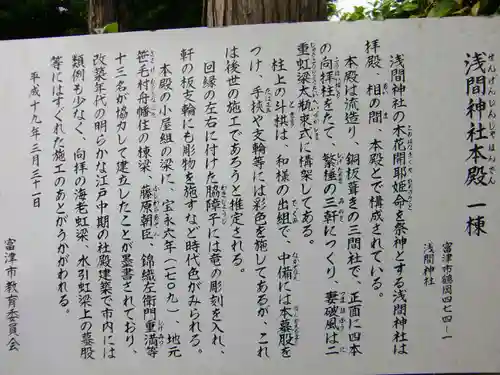 浅間神社本殿 一棟
せんげんじんじゃほんでん
富津市鶴岡四七四―一
浅間神社
浅間神社の木花開耶姫命を祭神とする浅間神社は
拝殿、相の間、本殿とで構成されている。
本殿は流造り、銅板葺きの三間社で、正面に四本
の向拝柱をたて、繁棰の三軒につくり、妻破風は二
重虹梁太瓶束式に構架してある。
柱上の斗栱は、和様の出組で、中備には本蟇股を
つけ、手挟や支輪等には彩色を施してあるが、これ
は後世の施工であろうと推定される。
回縁の左右に付けた脇障子には竜の彫刻を入れ、
軒の板支輪にも彫物を施すなど時代色がみられる。
本殿の小屋組の梁に、宝永六年(一七〇九)、地元
笹毛村舟幡住の棟梁、藤原朝臣、錦織左衛門重満等
十三名が協力して建立したことが墨書されており、
改築年代の明らかな江戸中期の社殿建築で市内には
類例も少なく、向拝の海老虹梁、水引虹梁上の蟇股
等にはすぐれた施工のあとがうかがわれる。
平成十九年三月三十一日
富津市教育委員会